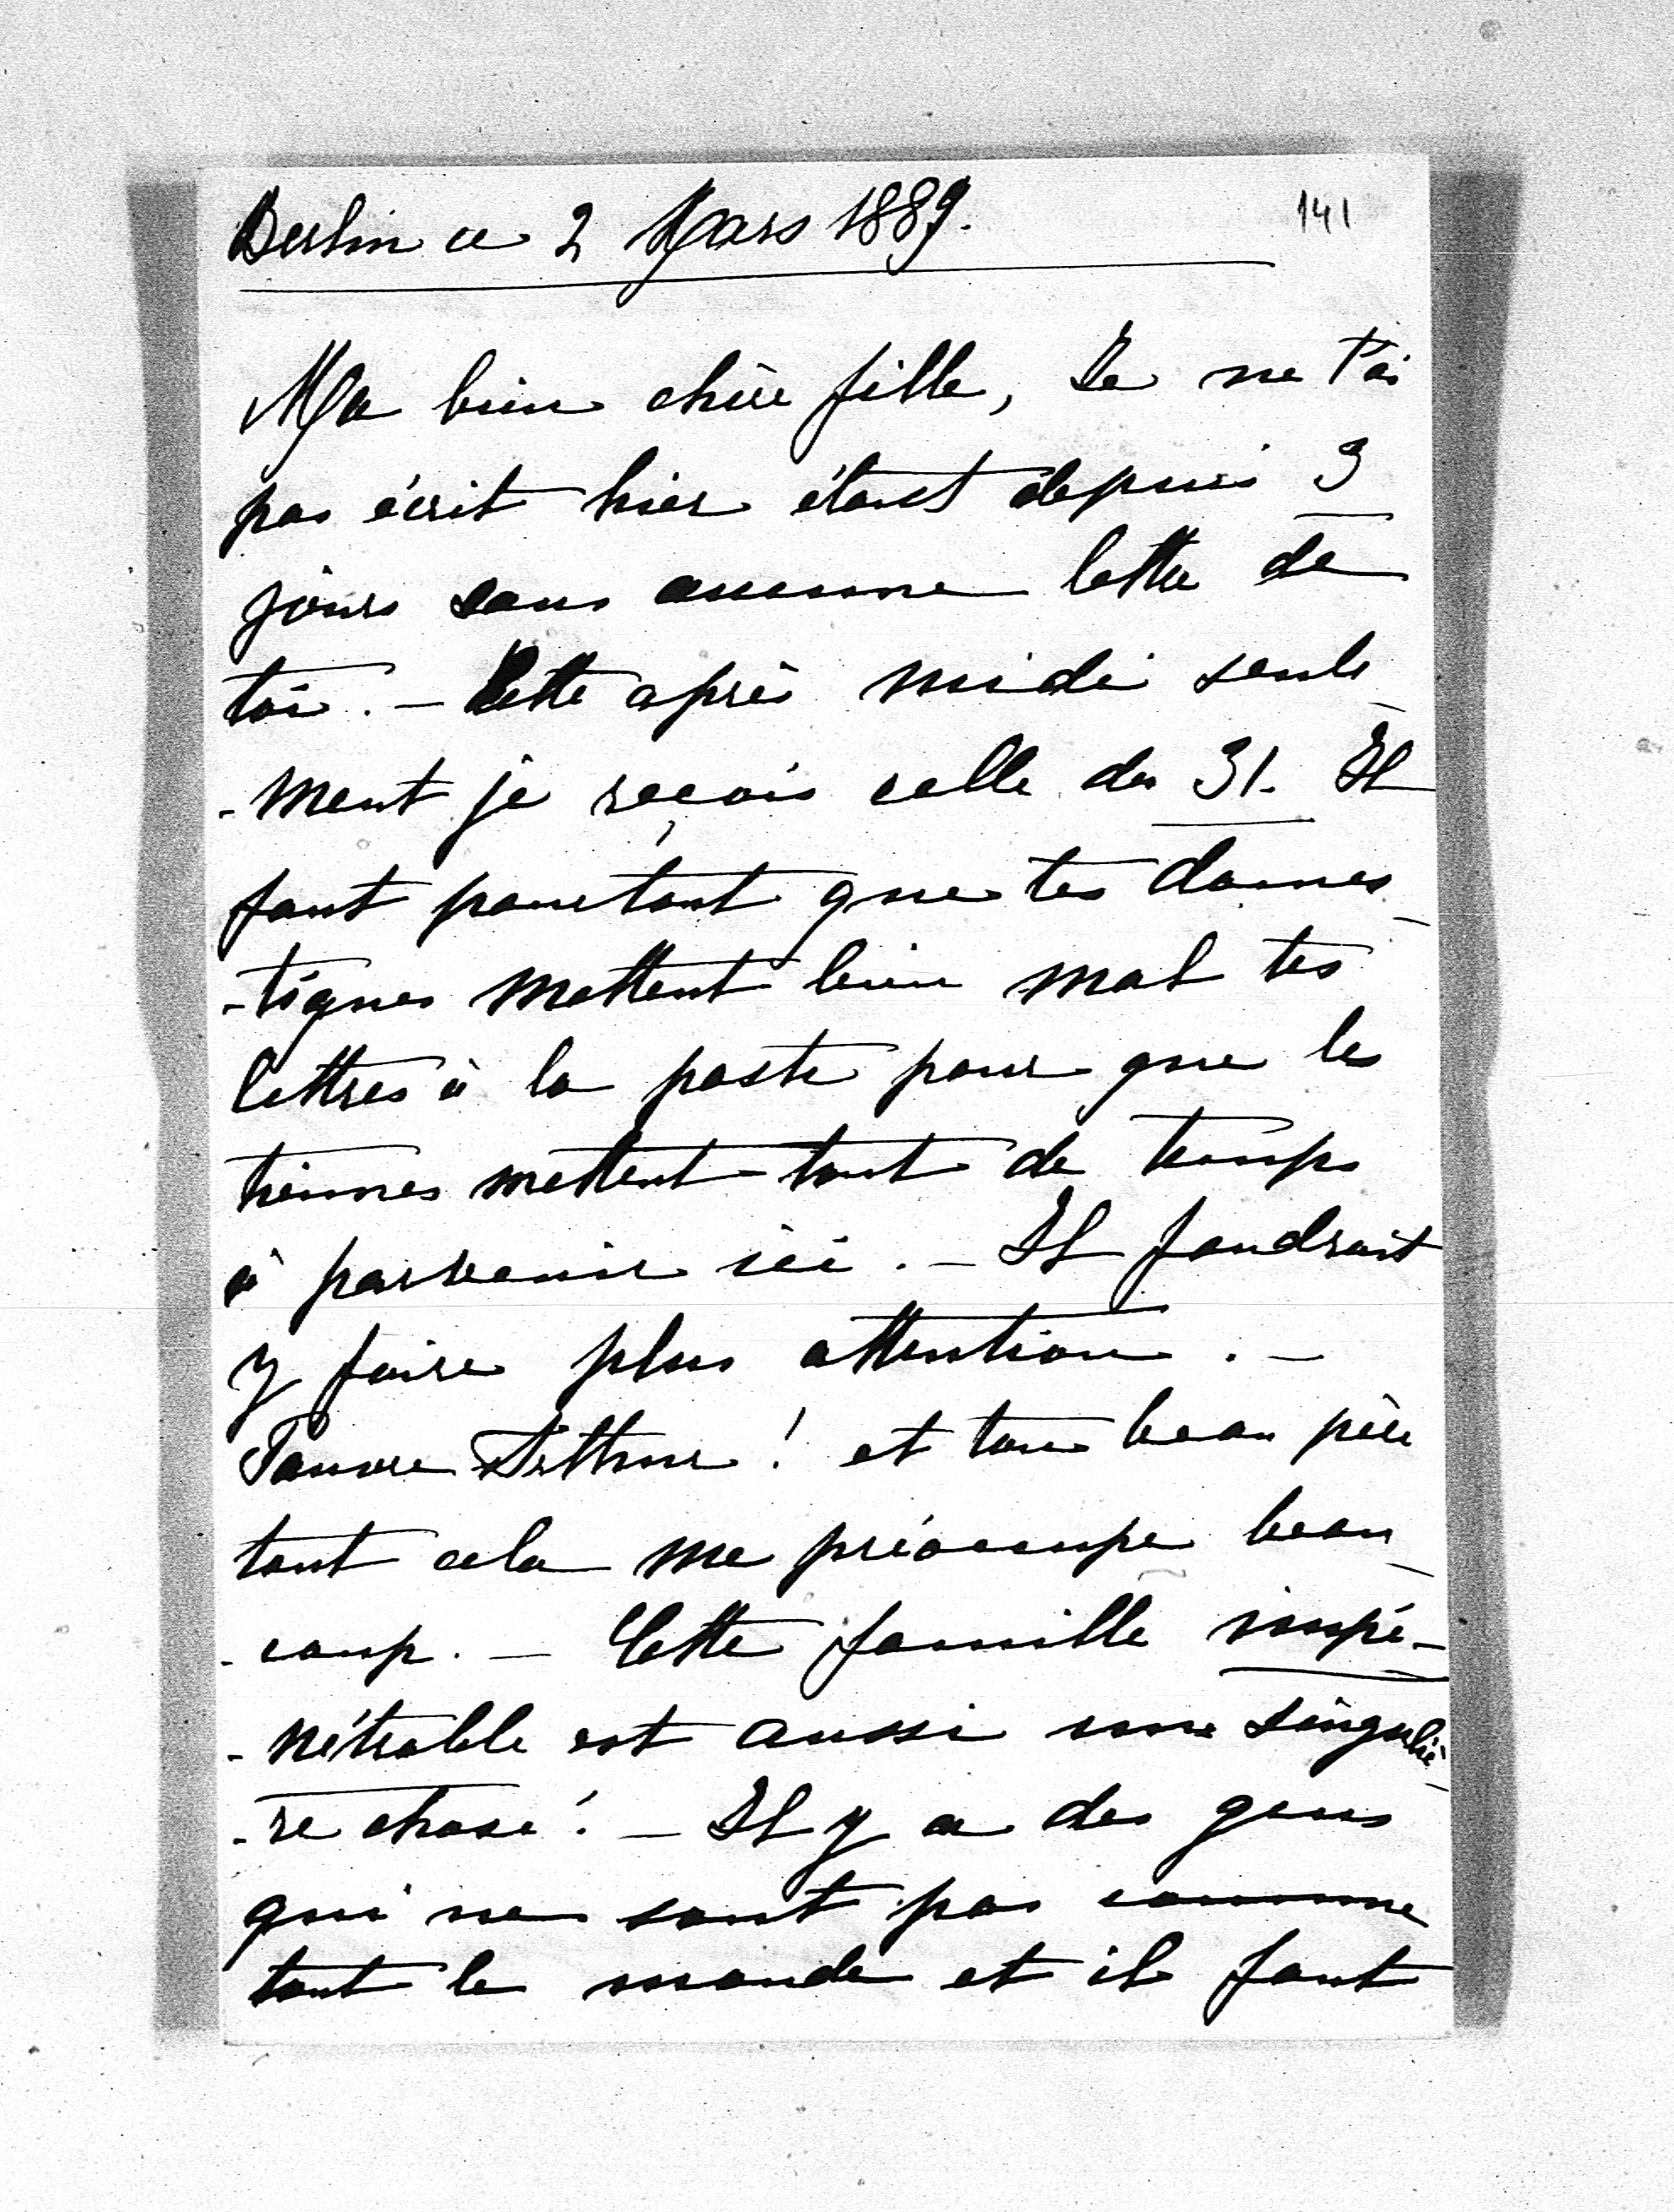 Berlin ce 2 Mars 1889.
141
Ma bien chère fille, Je ne t'ai
pas écrit hier étant depuis 3
jours sans aucune lettre de
toi. – Cette après midi seule
-ment je reçois celle du 31. Il
faut pourtant que tes domes-
-tiques mettent bien mal tes
lettres à la poste pour que les
tiennes mettent tant de temps
à parvenir ici. – Il faudrait
y faire plus attention. –
Pauvre ! et ton beau père
tout cela me préoccupe beau-
-coup. – Cette famille impé-
-nétrable est aussi une singuliè-
-re chose! – Il y a des gens
qui ne sont pas comme
tout le monde et il faut